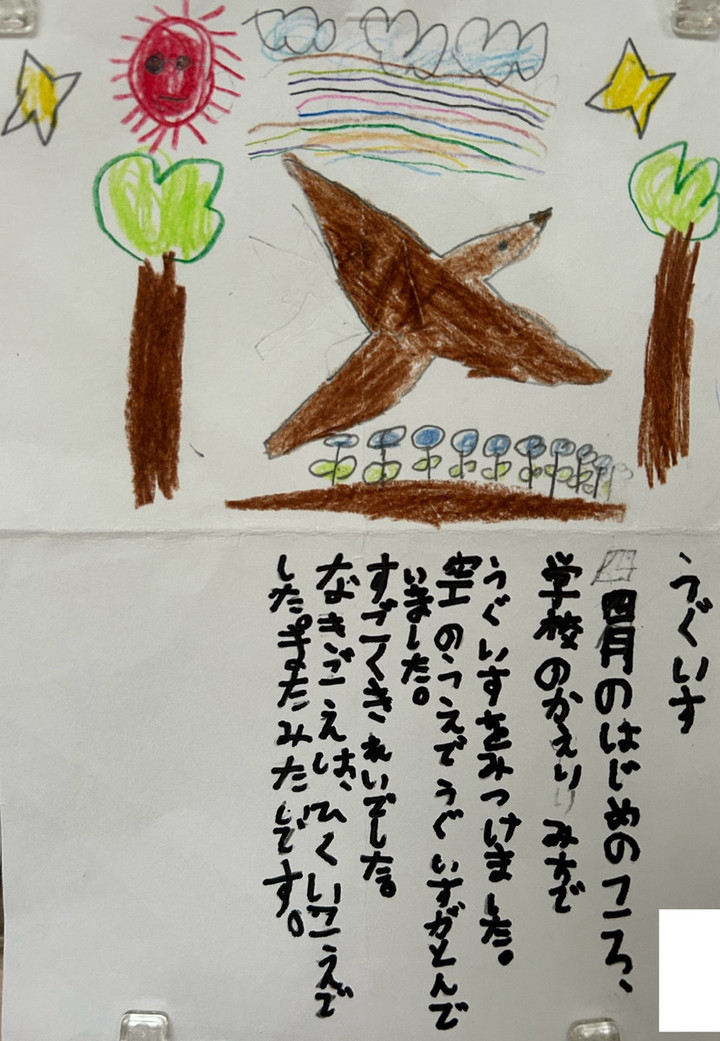 うぐいす
四月のはじめのころ、
学校のかえりみちで
うぐいすをみつけました。
空のうえでうぐいすがとんで
いました。
すごくきれいでした。
なきごえは、ひくいこえで
した。またみたいです。